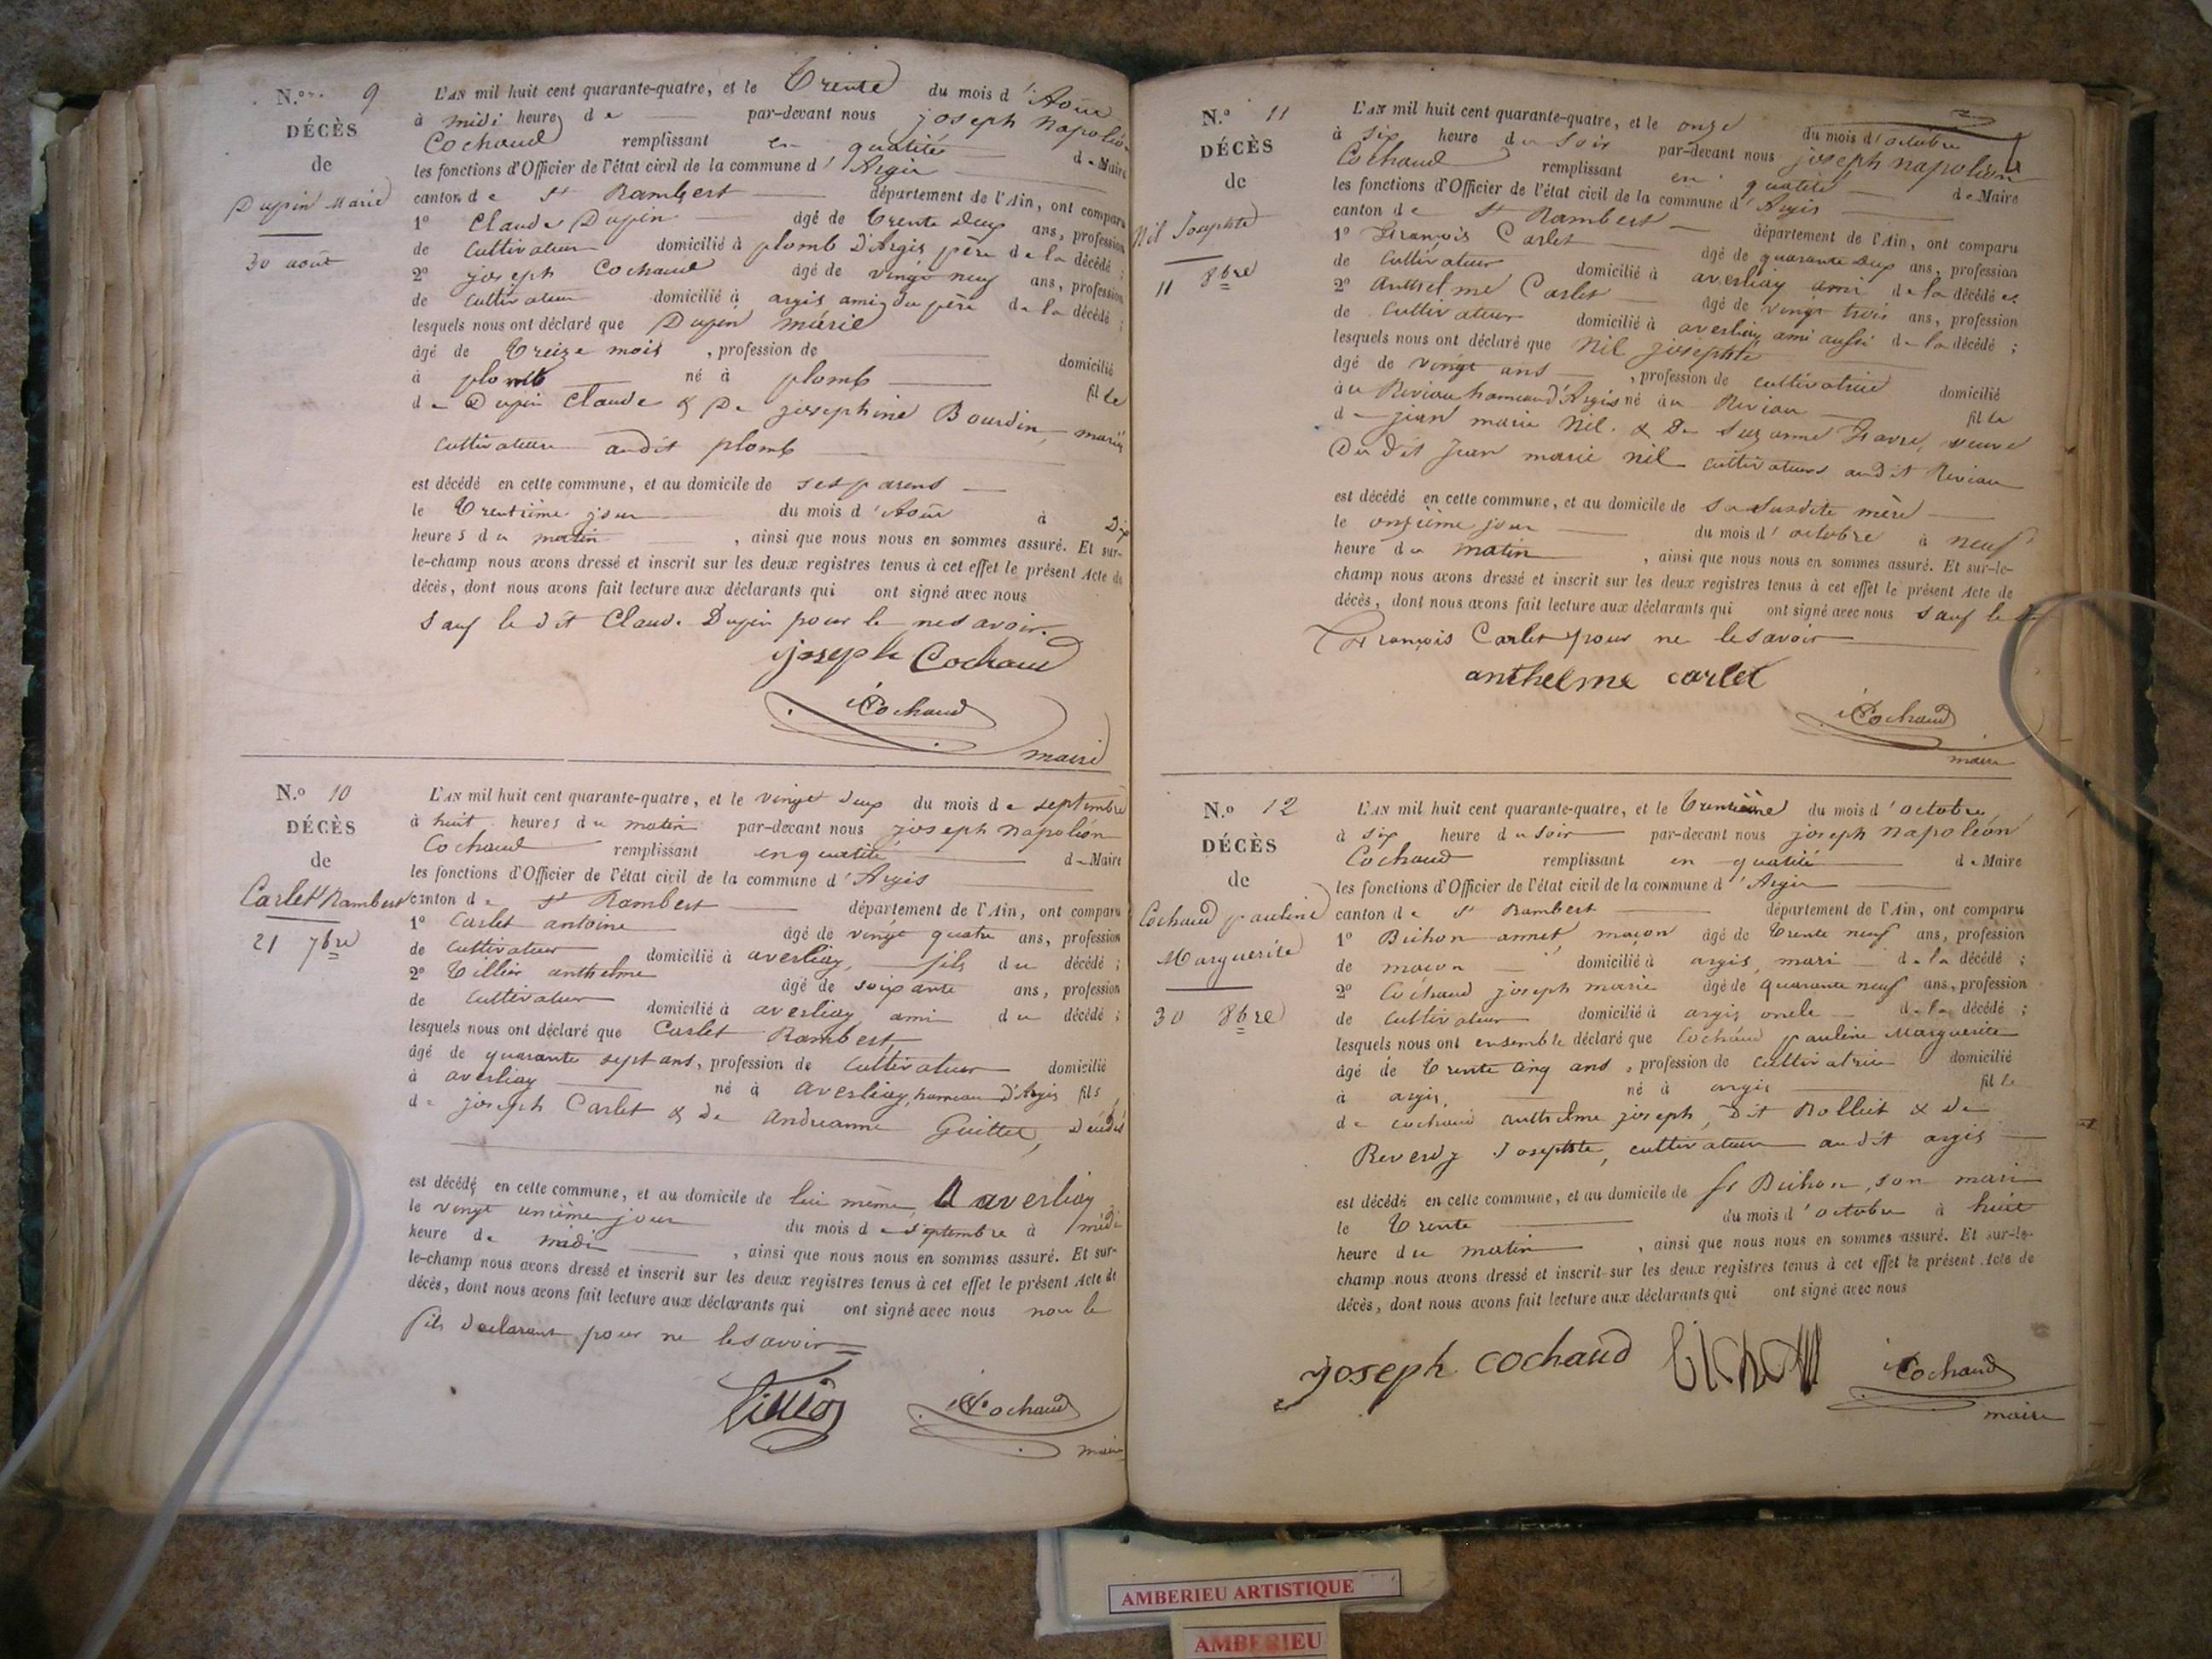 N.º 9
DÉCÈS
de
Dupin Marie
30 août
L'AN mil huit cent quarante-quatre, et le Trente du mois d'Août
à midi heure de par-devant nous joseph Napoléon
Cochaud remplissant en qualité de Maire
les fonctions d'Officier de l'état civil de la commune d'Argis
canton de St Rambert département de l'Ain, ont comparu
1º Claude Dupin âgé de trente deux ans, profession
de cultivateur domicilié à plomb d'Argis père de la décédé ;
2º joseph Cochaud âgé de vingt neuf ans, profession
de cultivateur domicilié à argis ami du père de la décédé ;
lesquels nous ont déclaré que Dupin marie
âgé de Treize mois , profession de domicilié
à plomb né à plomb fil le
de Dupin Claude & De josephine Bourdin, mariés
cultivateurs audit plomb
est décédé en cette commune, et au domicile de ses parens
le Trentième jour du mois d'Août à Dix
heures du matin , ainsi que nous nous en sommes assuré. Et sur-
le-champ nous avons dressé et inscrit sur les deux registres tenus à cet effet le présent Acte de
décès, dont nous avons fait lecture aux déclarants qui ont signé avec nous
sauf le dit Claude Dupin pour le ne savoir.
joseph Cochaud
Cochaud
maire
N.º 10
DÉCÈS
de
Carlet Rambert
21 7bre
L'AN mil huit cent quarante-quatre, et le vingt deux du mois de septembre
à huit heures du matin par-devant nous joseph napoléon
Cochaud remplissant en qualité de Maire
les fonctions d'Officier de l'état civil de la commune d'Argis
canton de St Rambert département de l'Ain, ont comparu
1º Carlet antoine âgé de vingt quatre ans, profession
de cultivateur domicilié à averliay, fils du décédé ;
2º Tillier anthelme âgé de soixante ans, profession
de cultivateur domicilié à averliay ami du décédé ;
lesquels nous ont déclaré que Carlet Rambert,
âgé de quarante sept ans, profession de cultivateur domicilié
à averliay né à averliay, hameau d'Argis fils
de joseph Carlet & de andréanne Guittet, Décédés
est décédé en cette commune, et au domicile de lui même, à averliay
le vingt unième jour du mois de septembre à midi
heure de midi , ainsi que nous nous en sommes assuré. Et sur-
le-champ nous avons dressé et inscrit sur les deux registres tenus à cet effet le présent Acte de
décès, dont nous avons fait lecture aux déclarants qui ont signé avec nous non le
fils déclarant pour ne le savoir
Cochaud
maire
N.º 11
DÉCÈS
de
Nil Josephte
11 8bre
L'AN mil huit cent quarante-quatre, et le onze du mois d'octobre
à six heure du soir par-devant nous joseph napoléon
Cochaud remplissant en qualité de Maire
les fonctions d'Officier de l'état civil de la commune d'Argis
canton de St Rambert département de l'Ain, ont comparu
1º François Carlet âgé de quarante deux ans, profession
de cultivateur domicilié à averliay ami de la décédée
2º anthelme Carlet âgé de vingt trois ans, profession
de cultivateur domicilié à averliay ami aussi de la décédé ;
lesquels nous ont déclaré que Nil josephte
âgé de vingt ans , profession de cultivatrice domicilié
au Reviau hameau d'Argis né au Reviau fil le
de jean marie Nil. & De Suzanne Favre, veuve
Du dit Jean marie nil cultivateurs audit Reviau
est décédé en cette commune, et au domicile de sa susdite mère
le onzième jour du mois d'octobre à neuf
heure du matin , ainsi que nous nous en sommes assuré. Et sur-le-
champ nous avons dressé et inscrit sur les deux registres tenus à cet effet le présent Acte de
décès, dont nous avons fait lecture aux déclarants qui ont signé avec nous sauf le dt
François Carlet pour ne le savoir
anthelme carlet
Cochaud
maire
N.º 12
DÉCÈS
de
Cochaud pauline
Marguerite
30 8bre
L'AN mil huit cent quarante-quatre, et le trentième du mois d'octobre
à six heure du soir par-devant nous joseph napoléon
Cochaud remplissant en qualité de Maire
les fonctions d'Officier de l'état civil de la commune d'Argis
canton de St Rambert département de l'Ain, ont comparu
1º Bichon annet, maçon âgé de trente neuf ans, profession
de maçon domicilié à argis, mari de la décédé ;
2º Cochaud joseph marie âgé de quarante neuf ans, profession
de cultivateur domicilié à argis oncle de la décédé ;
lesquels nous ont ensemble déclaré que Cochaud pauline Marguerite
âgé de trente cinq ans , profession de cultivatrice domicilié
à argis, né à argis fil le
de cochaud anthelme joseph, dit Rollet & de
Reverdy Josephte, cultivateurs audit argis
est décédé en cette commune, et au domicile de sr Bichon, son mari
le Trente du mois d'octobre à huit
heure du matin , ainsi que nous nous en sommes assuré. Et sur-le-
champ nous avons dressé et inscrit sur les deux registres tenus à cet effet le présent Acte de
décès, dont nous avons fait lecture aux déclarants qui ont signé avec nous
joseph cochaud bichon Cochaud
maire
AMBERIEU ARTISTIQUE
AMBERIEU